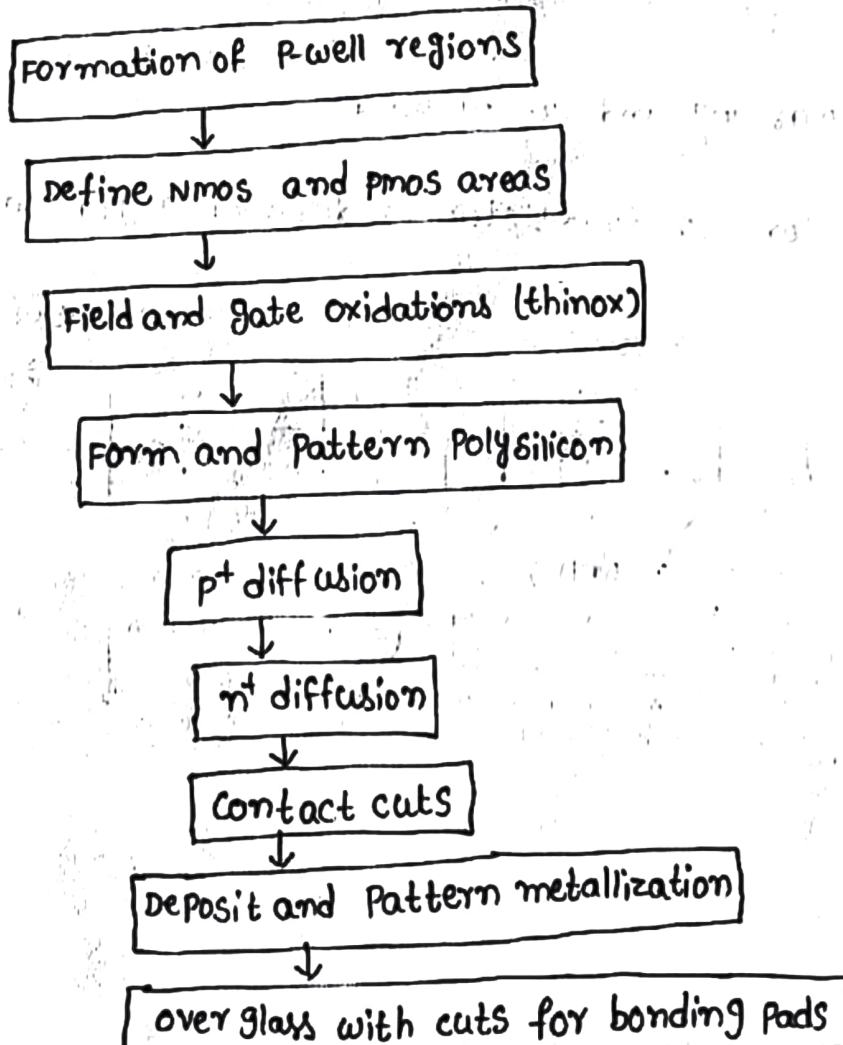 Formation of P-well regions
Define NMOS and PMOS areas
Field and gate oxidations (thinox)
Form and pattern polysilicon
p+ diffusion
n+ diffusion
contact cuts
Deposit and pattern metallization
over glass with cuts for bonding pads